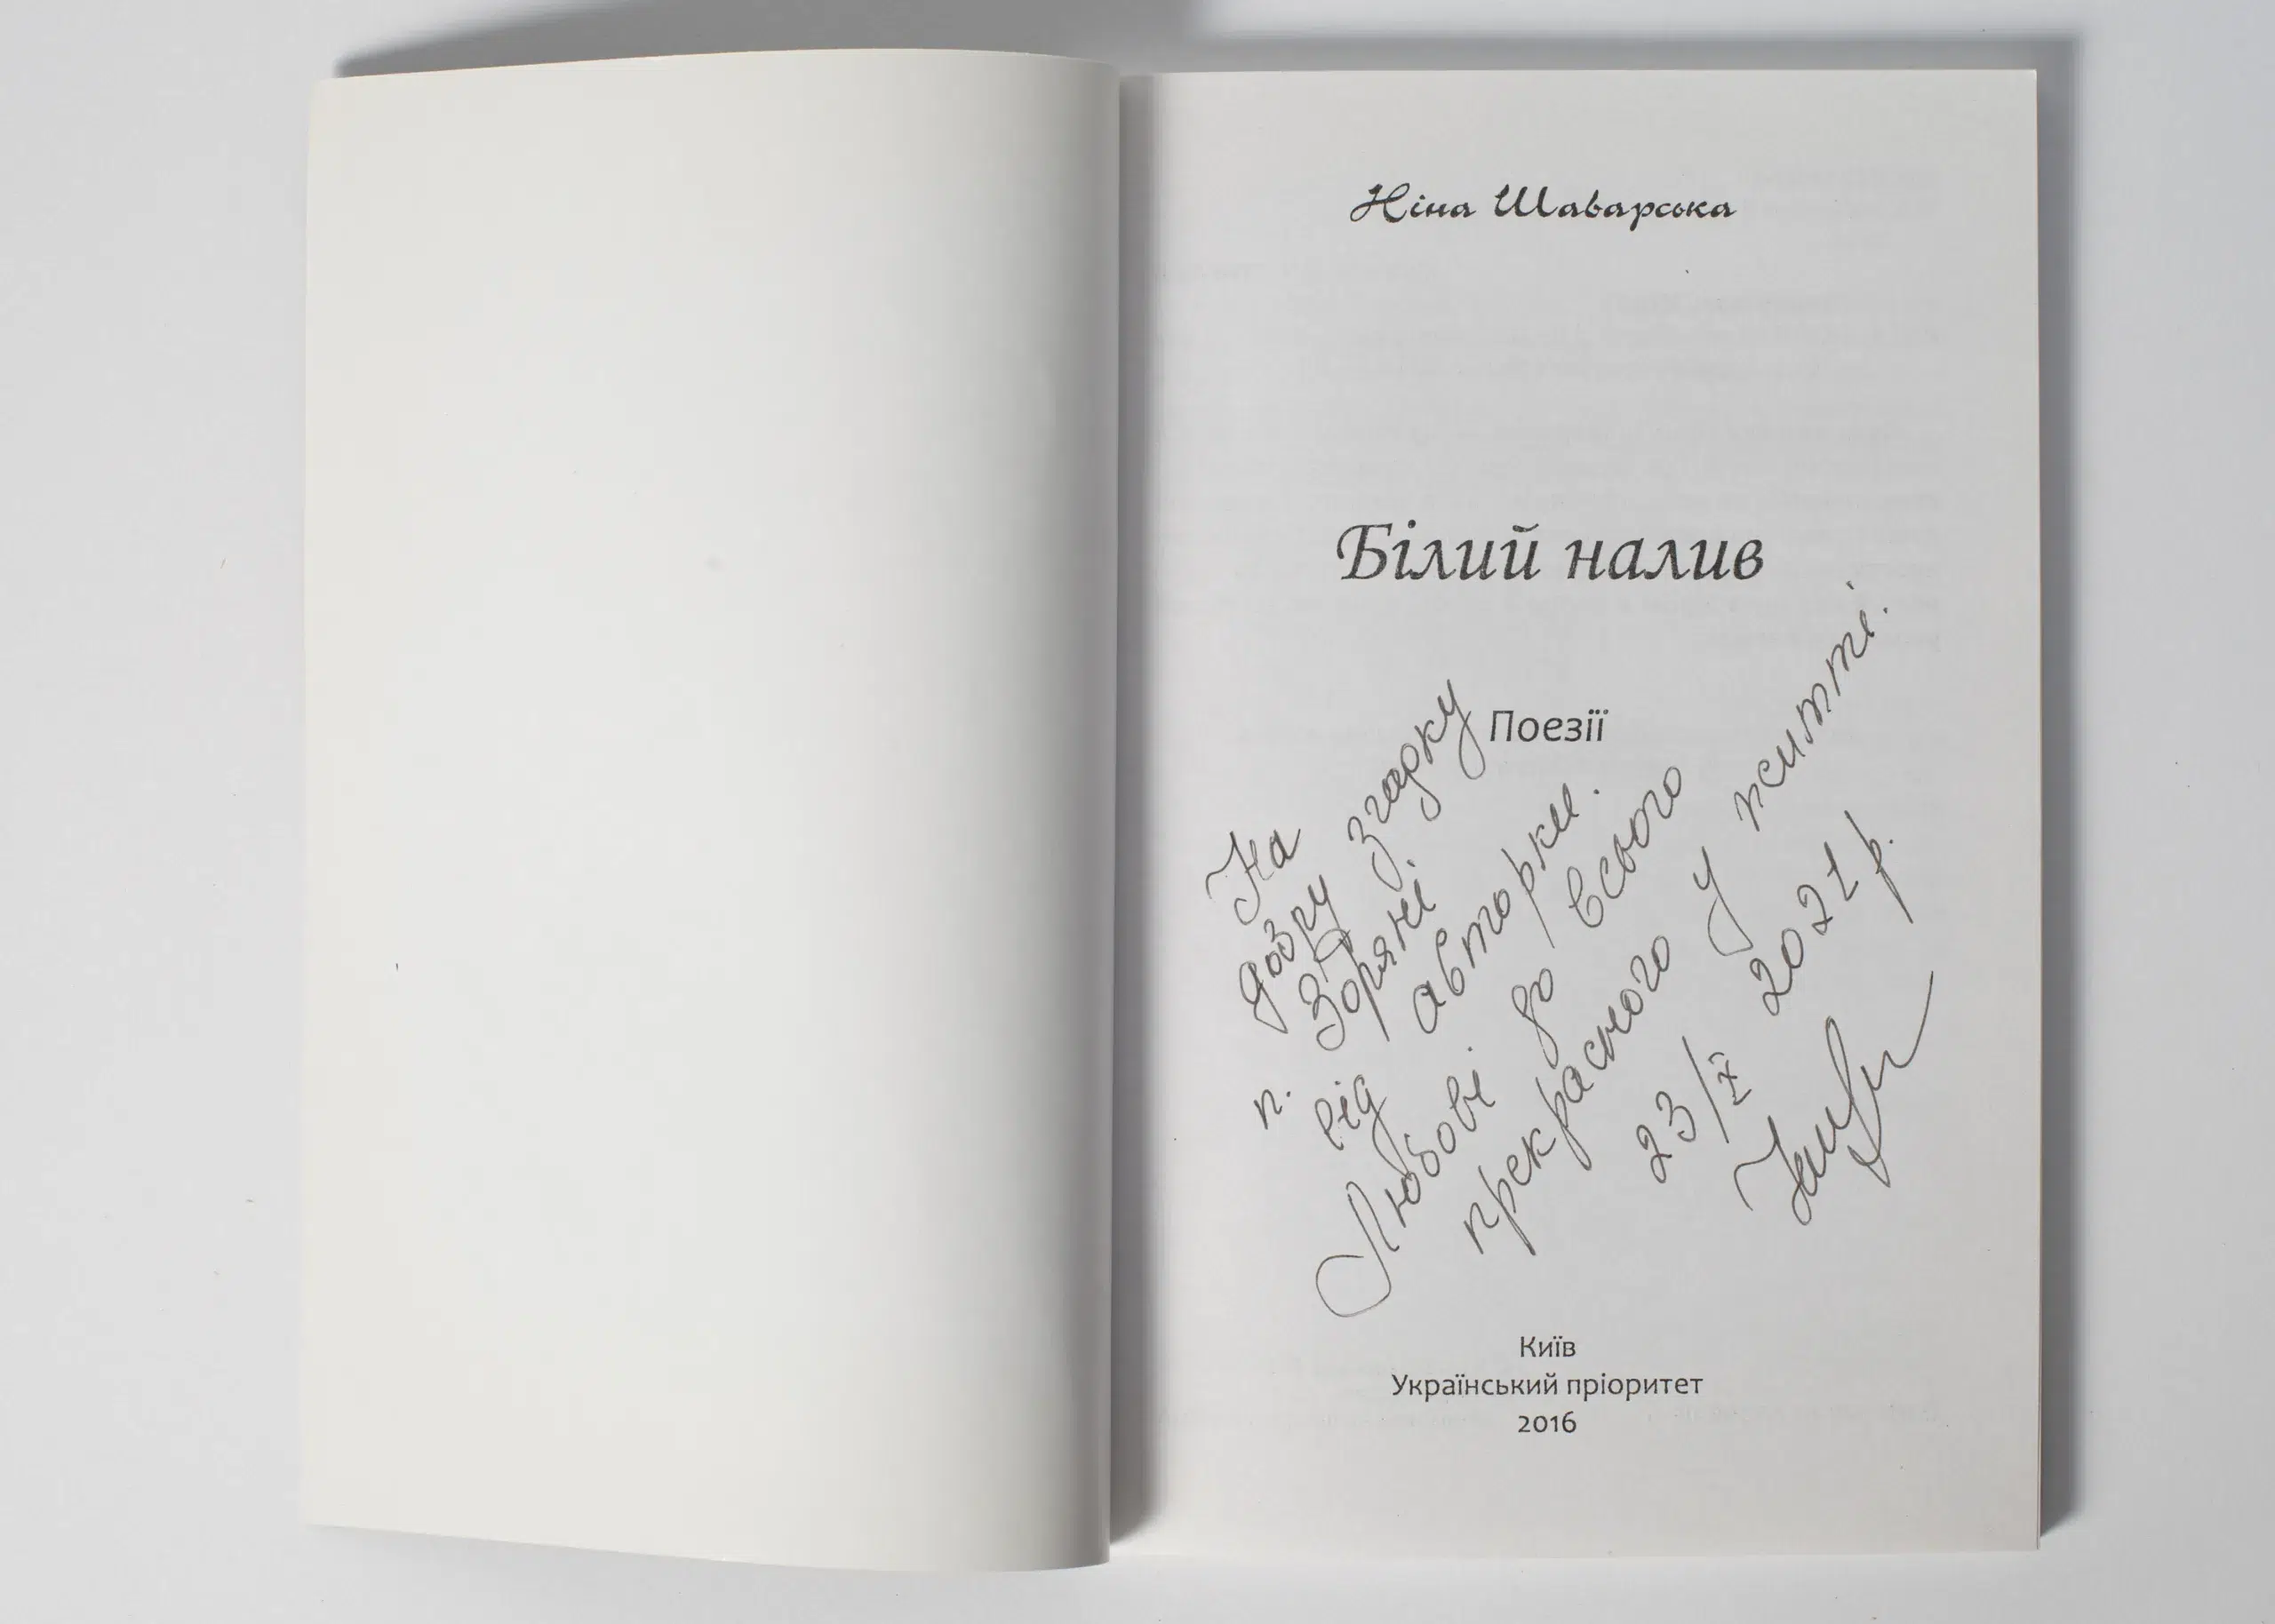 Ніна Шаварська
Білий налив
Поезії
На добру згадку
п. Зоряні
від авторки.
Любові до всього
прекрасного у житті.
23/X 2021 р.
Київ
Український пріоритет
2016